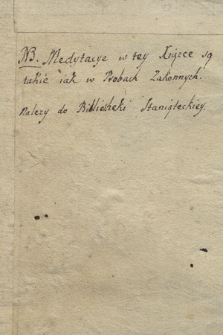 NB. Medytacye w tey Xiążce są
takie iak w Osobach Zakonnych.
Należy do Biblioteki Staniąteckiey.